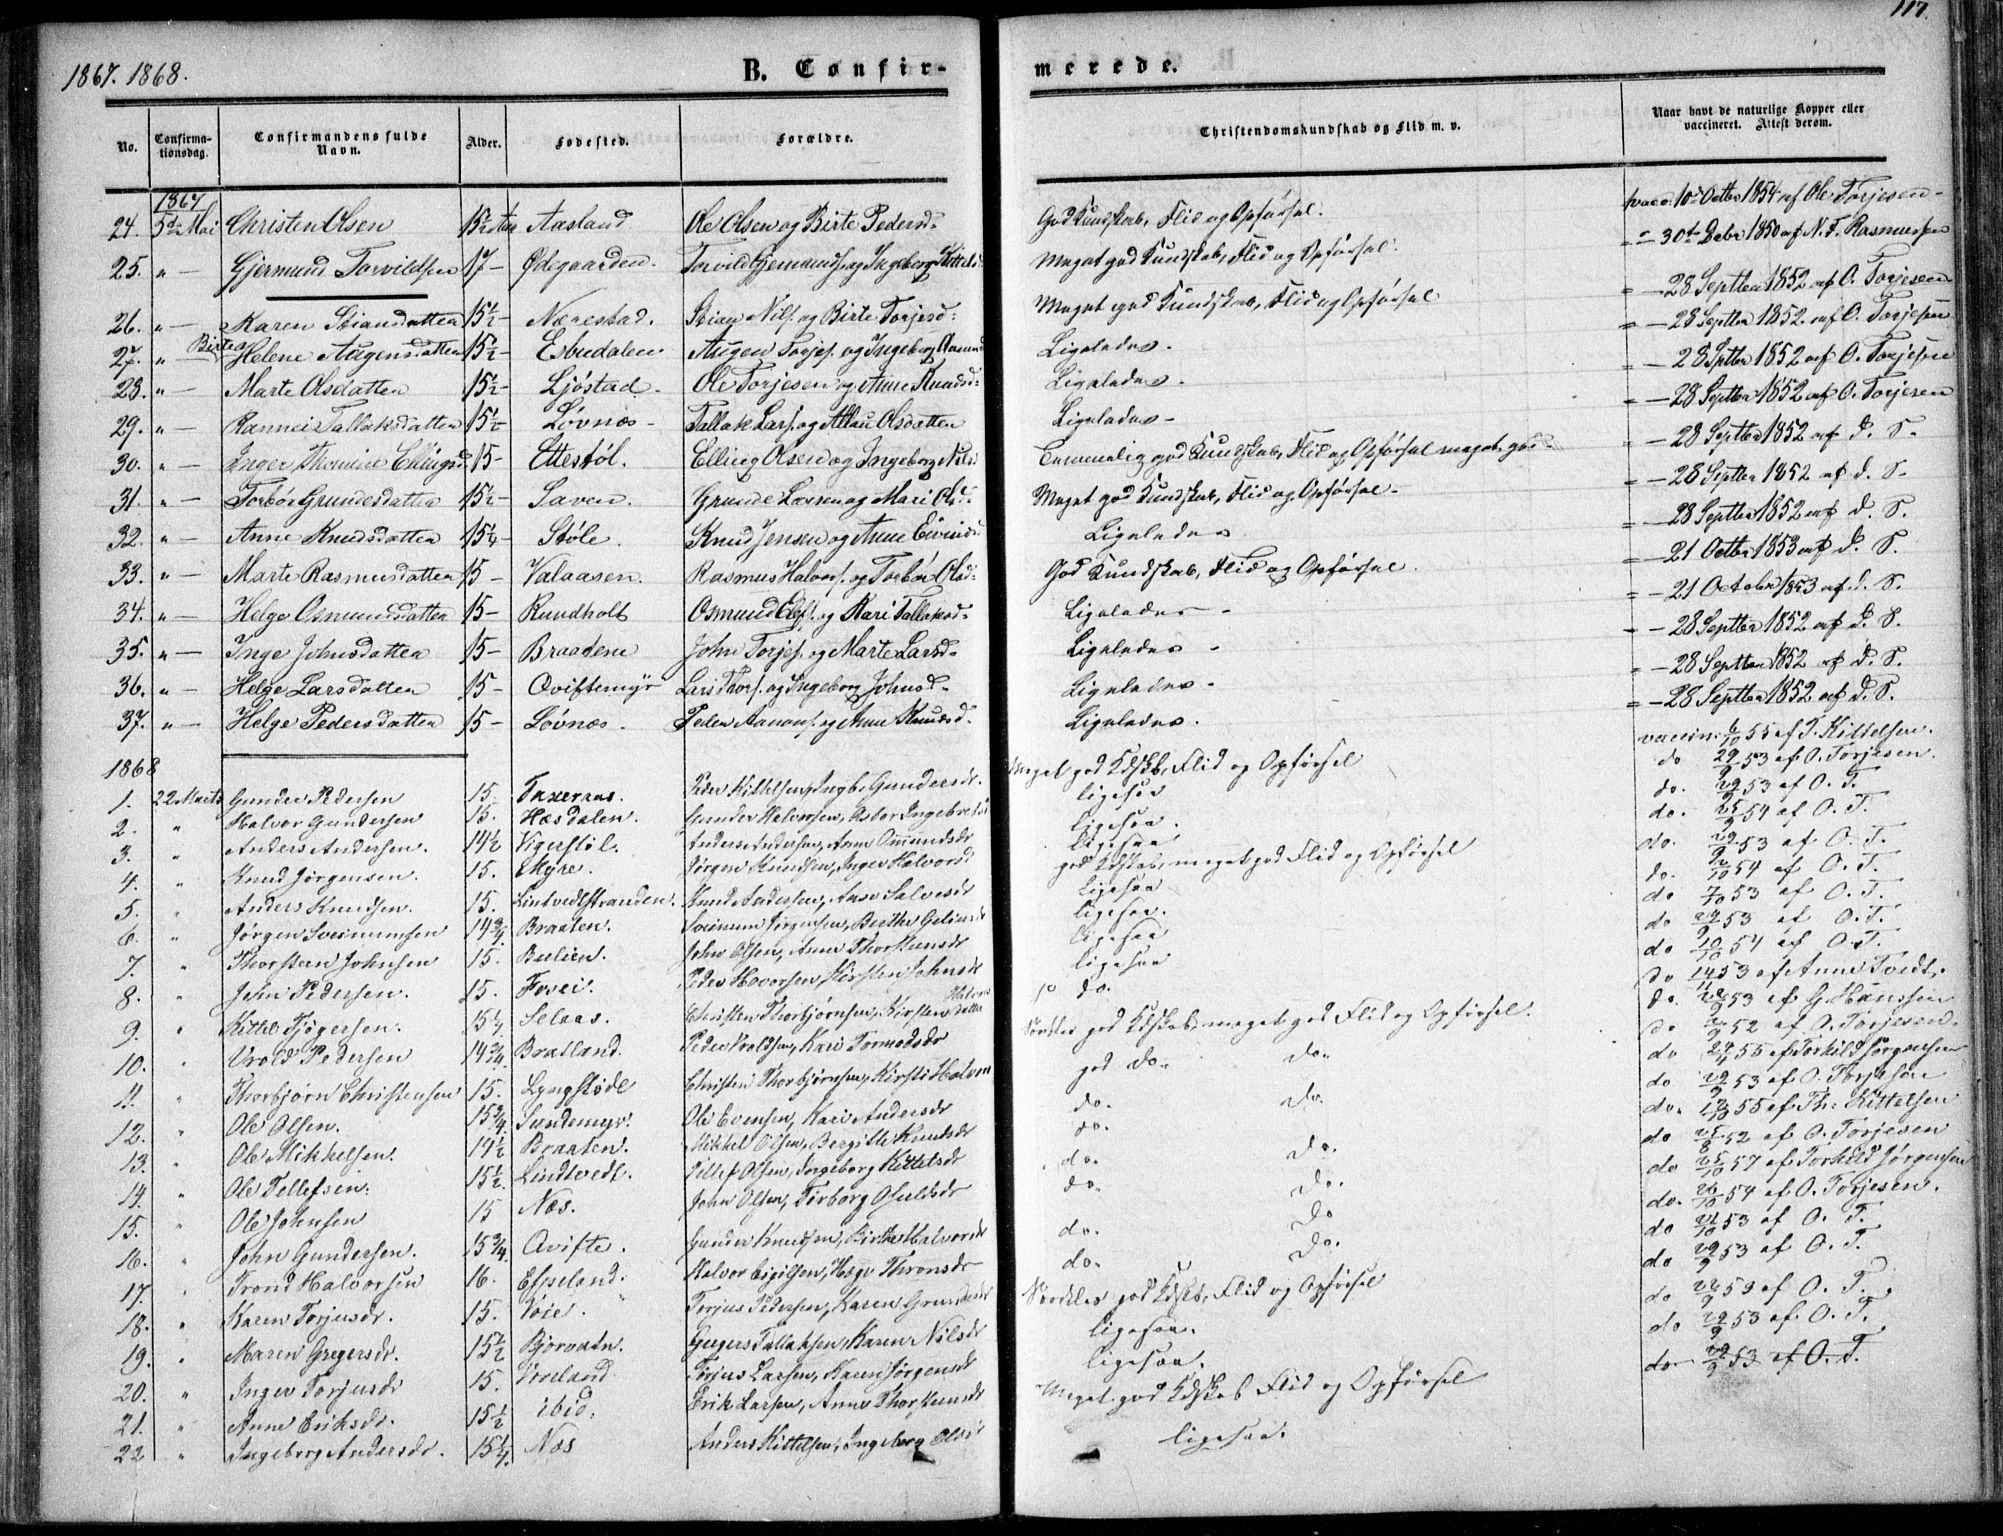 1867. 1868.
B. Confirmerede.
117.
No. Confirmationsdag. Confirmandens fulde Navn. Alder. Fødested. Forældre. Christendomskundskab og Flid m. v. Naar havt de naturlige Kopper eller vaccineret. Attest derom.
1867
24. 5te Mai Christen Olsen 15½ Aar Aasland. Ole Olsen og Birte Pedersd. God Kundskab, Flid og Opførsel. vacc. 10de Octbr 1854 af Ole Torjesen
25. " Gjermund Torvildsen 17 - Ødegaarden. Torvild Gjermunds. og Ingeborg Kittelsd. Meget god Kundskab, Flid og Opførsel. " 30te Debr 1850 af N. T. Rasmussen
26. " Karen Stiansdatter 15½ - Nærestad. Stian Nils. og Birte Torjesd. Meget god Kundskab, Flid og Opførsel " 28 Septbr 1852 af O. Torjesen
27. " Birte Helene Augensdatter 15½ - Esbudalen Augen Torjes. og Ingeborg Aamunds Ligeledes. " 28 Septbr 1852 af O. Torjesen
28. " Marte Olsdatter 15½ - Ljøstad. Ole Torjesen og Anne Knudsd. Ligeledes. " 28 Septbr 1852 af O. Torjesen
29. " Rannei Tallaksdatter 15½ - Løvnæs - Tallak Lars. og Allau Olsdatter Ligeledes - " 28 Septbr 1852 af O. Torjesen
30. " Inger Thomine Ellingsd 15 - Ettestøl. Elling Olsen og Ingeborg Nilsd Temmelig god Kundskab, Flid og Opførsel meget god " 28 Septbr 1852 af d. S.
31. " Torbør Grundesdatter 15½ - Saven. Grunde Larsen og Mari Ols. Meget god Kundskab, Flid og Opførsel - " 28 Septbr 1852 af d. S.
32. " Anne Knudsdatter 15¼ - Støle. Knud Jensen og Anne Eivinds Ligeledes " 28 Septbr 1852 af d. S.
33. " Marte Rasmusdatter 15 - Valaasen. Rasmus Halvors. og Torbør Olsd. God Kundskab, Flid og Opførsel. " 21 Octbr 1853 af d. S.
34. " Helge Osmundsdatter 15 - Rundholt Osmund Ols. og Kari Tallaksd. Ligeledes - " 21 Octobr 1853 af d. S.
35. " Inge Johnsdatter 15 - Braadene John Torjes. og Marte Larsd. Ligeledes - " 28 Septbr 1852 af d. S.
36. " Helge Larsdatter 15 - Qviftemyr Lars Thors. og Ingeborg Johnsd. Ligeledes - " 28 Septbr 1852 af d. S.
37. " Helge Pedersdatter 15 - Løvnæs. Peder Aanons. og Anne Knudsd. Ligeledes. " 28 Septbr 1852 af d. S.
1868
1. 22 Marts Gunder Pedersen 15. Taxeraas. Peder Kittelsen, Ingb. Gundersdr. Meget god Kdskb, Flid og Opførsel vaccin. 6/10 55 af T. Kittelsen.
2. " Halvor Gundersen 15. Hæsdalen. Gunder Halvorsen, Asbor Ingebretsd ligesaa do 29/9 53 af O. Torjesen.
3. " Anders Andersen. 14½ Vigerstøl. Anders Andersen, Anne Omundsdr ligesaa. do. 29/9 53 af O. T.
4. " Knud Jørgensen. 15. Myre. Jørgen Knudsen, Inger Halvorsd ligesaa do. 25/9 54 af O. T.
5. " Anders Knudsen. 15. Lintvedtstranden. Knud Andersen, Anne Salvesdr god Kdskb, meget god Flid og Opførsel do. 29/9 53 af O. T.
6. " Jørgen Sveinumsen 14¾. Braaten. Sveinum Jørgensen, Berthe Geliusdr ligesaa do. 2/10 54 af O. T.
7. " Thorsteen Johnsen 15. Bulien. John Olsen, Anne Thorstensdr ligesaa. do 7/10 53 af O. T.
8. " John Pedersen. 15. Fosei. Peder Hovorsen, Kirsten Johnsdr ligesaa do 29/9 53 af O. T.
9. " Kittel Tjøgersen. 15¼ Selaas. Christen Thorbjørnsen, Kirsten Halvorsdatter ligesaa do 10/10 54 af O. T.
10. " Vrold Pedersen 14¾. Bratland. Peder Vroldsen, Kari Tormodsdr do. do 14/11 53 af Anne Tvedt.
11. " Thorbjørn Christensen 15. Lyngstøde Christen Thorbjørnsen, Kirsti Halvors Særdeles god Kdskab, meget god Flid og Opførsel. do. 29/9 53 af G. Hanssen
12. " Ole Olsen. 15¾ Sundemyr. Ole Evensen, Kari Andersdr god do. do. do 52 af O. Torjesen.
13. " Ole Mikkelsen. 14½ Braaten. Mikkel Olsen, Bergitte Knudsdr do. do. do 55 af Torkild Jørgensen
14. " Ole Tellefsen. 15½. Lindtvedt. Tellef Olsen, Ingeborg Kittelsdr do. do 29/9 53 af O. Torjesen
15. " Ole Johnsen 15 Næs. John Olsen, Torborg Olufsdr do. do. do. 55 af Th: Kittelsen
16. " John Gundersen. 15¾. Qvifte. Gunder Knudsen, Birthe Halvorsdr do. do. do 25/8 52 af O. Torjesen
17. " Trond Halvorsen 16. Espeland. Halvor Eigilsen, Hæge Thronsdr do. do do 25/10 57 af Torkild Jørgensen
18. " Karen Torjusdr. 15. Voie. Torjus Pedersen, Karen Grundesdr do. do. do. 54 af O. Torjesen.
19. " Maren Gregersdr. 15½ Bjorvatn. Gregers Tallaksen, Karen Nilsdr Særdeles god Kdskb, Flid og Opførsel do 21/10 53 af O. T.
20. " Inger Torjusdr 15. Vreeland Torjus Larsen, Karen Jørgensdr ligesaa. do 29/9 53 af O. T.
21. " Anne Eriksdr. 15½ ibid. Erik Larsen, Anne Thorstensdr ligesaa. do 53 af O. T.
22 " Ingeborg Andersdr. 15¼. Næs Anders Kittelsen, Ingeborg Olsdr Meget god Kdskab Flid og Opførsel do 29/9 53 af O. T.
ligesaa. do 29/9 53 af O. T.